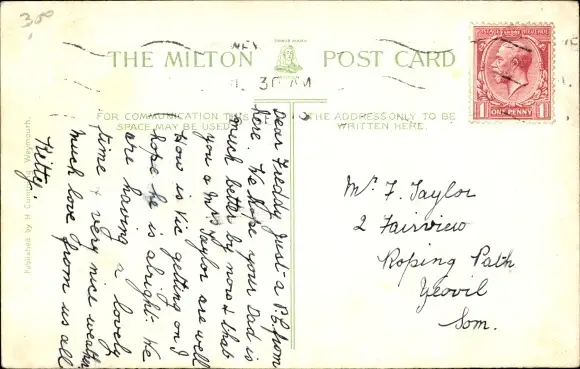 3.50
THE MILTON POST CARD
TRADE MARK
WEY
1. 30 AM
POSTAGE REVENUE
ONE PENNY
1 1
FOR COMMUNICATION THIS
SPACE MAY BE USED
THE ADDRESS ONLY TO BE
WRITTEN HERE.
Dear Freddy Just a P.C. from
here. We hope your Dad is
much better by now & that
you & Mrs Taylor are well
How is Vic getting on I
hope he is alright. We
are having a lovely
time & very nice weather
much love from us all
Kitty.
Mr. F. Taylor
2 Fairview
Roping Path
Yeovil
Som.
Published by H. Weymouth.